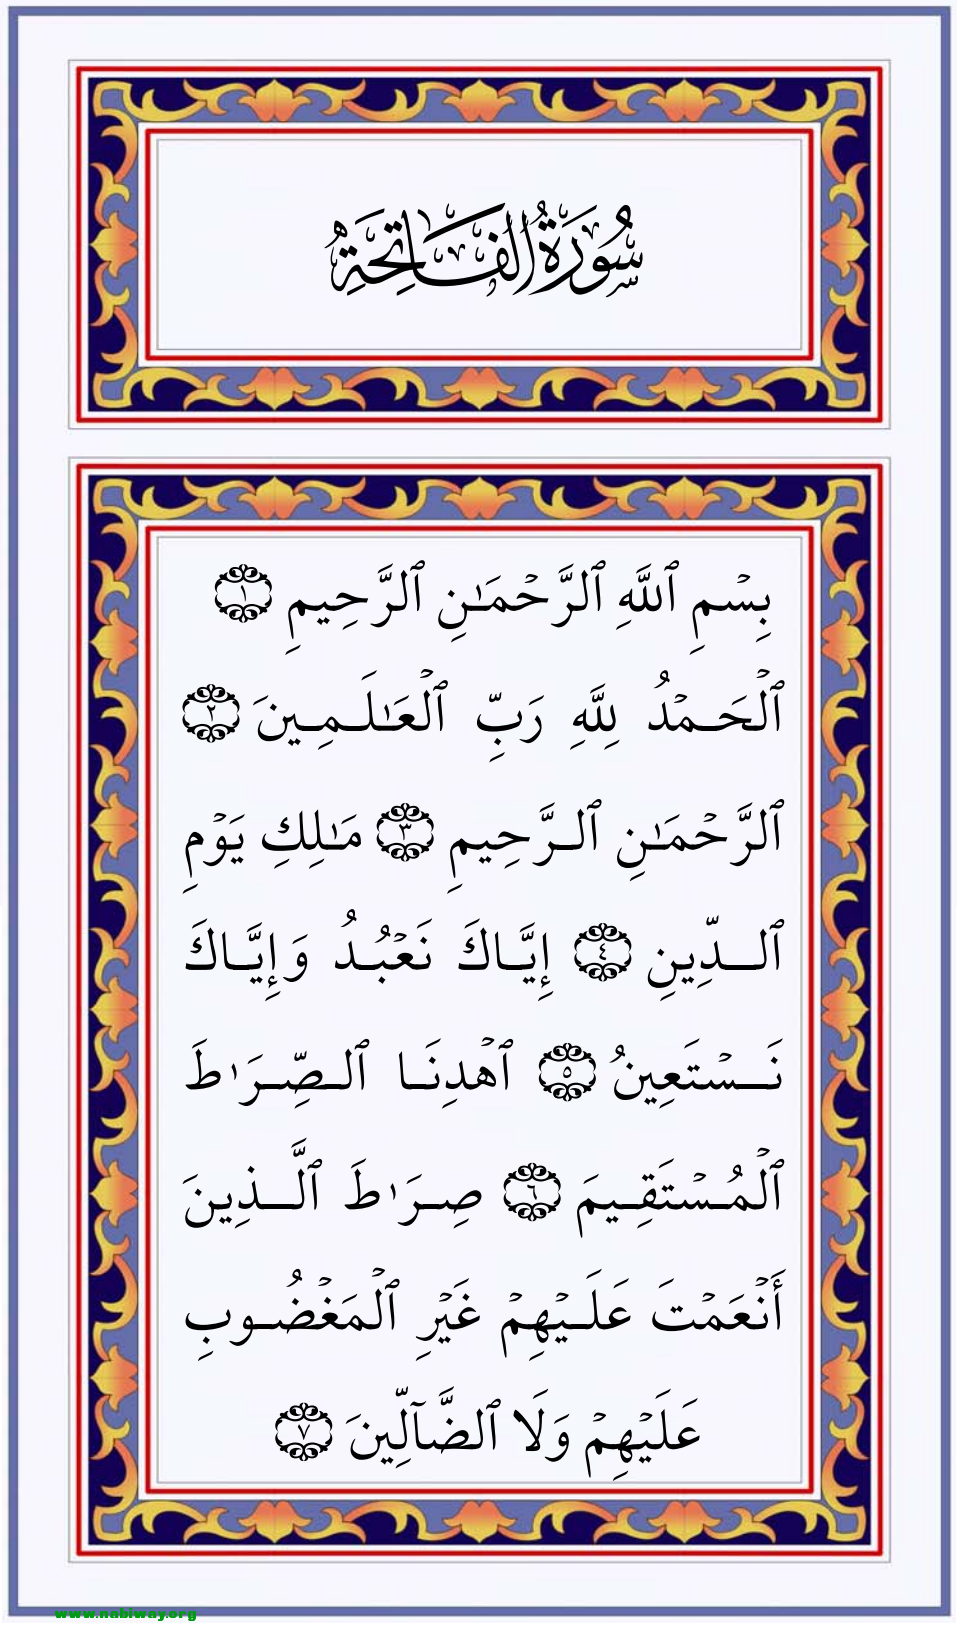 سُورَةُ ٱلْفَاتِحَةِ
بِسْمِ ٱللَّهِ ٱلرَّحْمَـٰنِ ٱلرَّحِيمِ ١
ٱلْحَـمْدُ لِلَّهِ رَبِّ ٱلْعَـٰلَـمِـينَ ٢
ٱلرَّحْمَـٰنِ ٱلـرَّحِيمِ ٣ مَـٰلِكِ يَوْمِ
ٱلـــدِّينِ ٤ إِيَّـاكَ نَعْبُـدُ وَإِيَّـاكَ
نَـــسْتَعِينُ ٥ ٱهْدِنَـا ٱلـصِّـرَٰطَ
ٱلْمُـسْتَقِـيمَ ٦ صِـرَٰطَ ٱلَّـــذِينَ
أَنْعَمْتَ عَلَـيْهِمْ غَيْرِ ٱلْمَغْضُـوبِ
عَلَيْهِمْ وَلَا ٱلضَّآلِّينَ ٧
www.nabiway.org